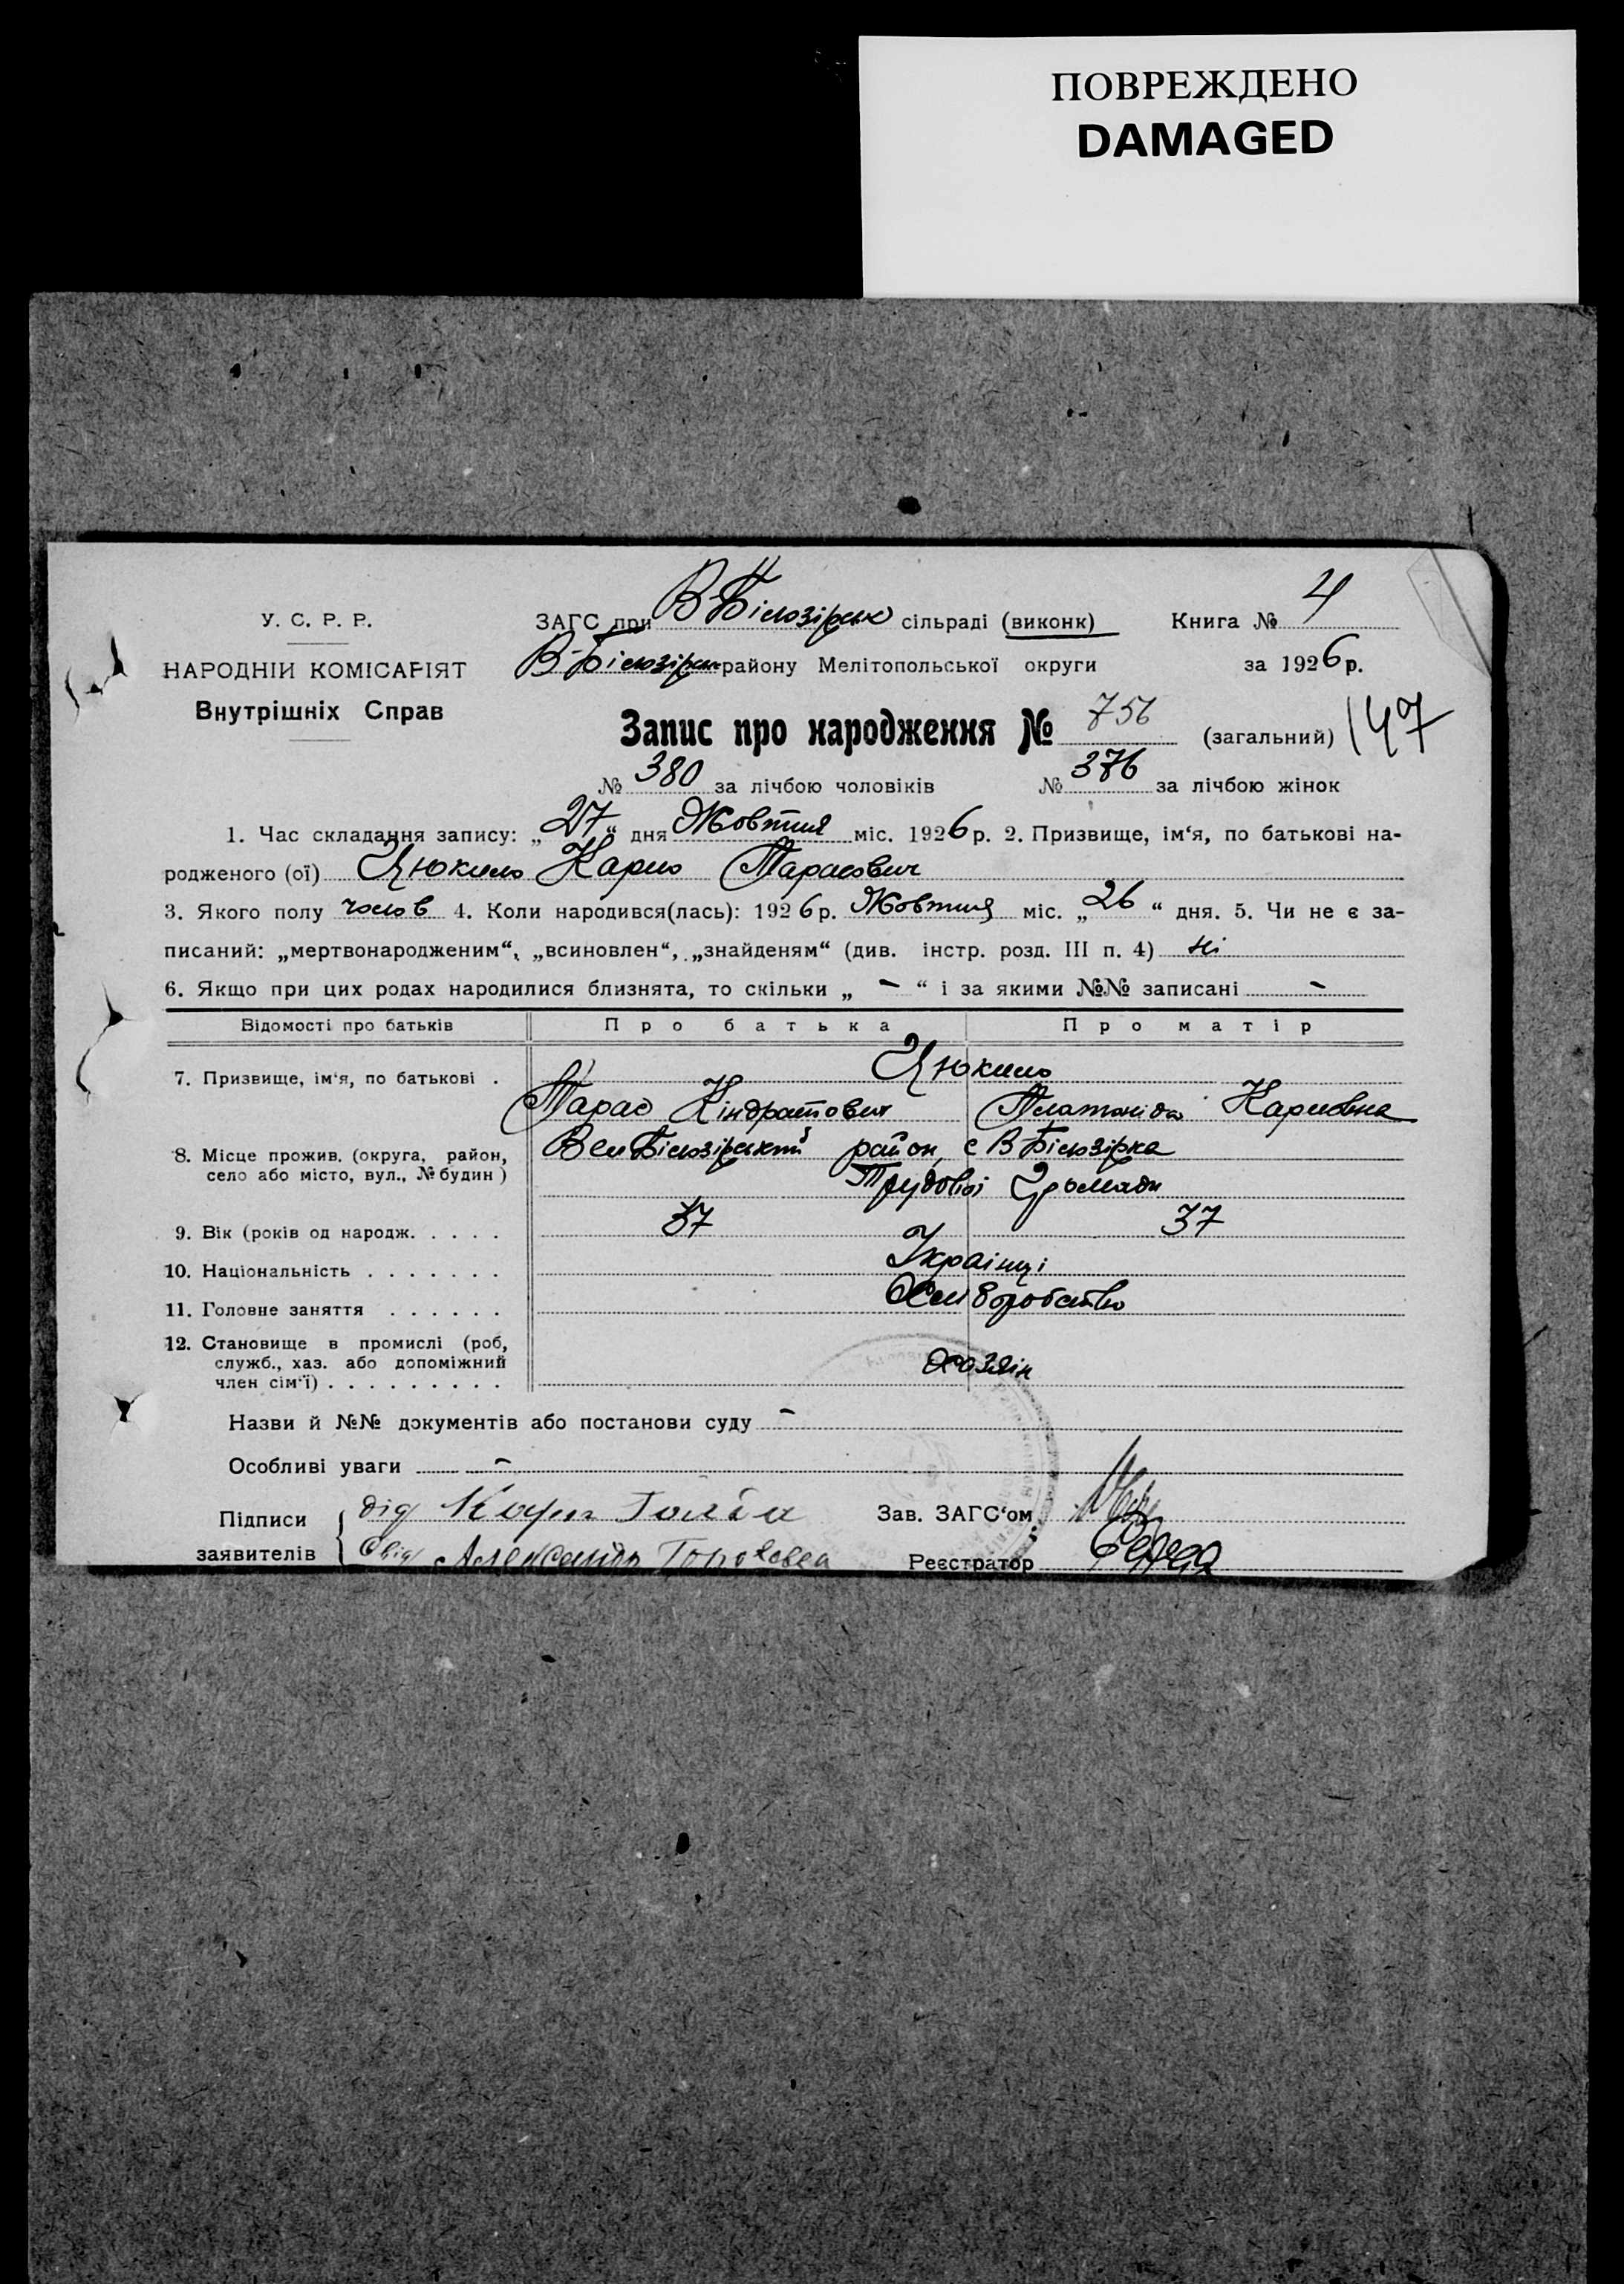 ПОВРЕЖДЕНО
DAMAGED
У. С. Р. Р.
НАРОДНІЙ КОМІСАРІЯТ
Внутрішніх Справ
ЗАГС при В-Білозірськ сільраді (виконк) Книга № 4
В-Білозірськ району Мелітопольської округи за 1926 р.
Запис про народження № 756 (загальний) 147
№ 380 за лічбою чоловіків № 376 за лічбою жінок
1. Час складання запису: „27“ дня Жовтня міс. 1926 р. 2. Призвище, ім‘я, по батькові на-
родженого (ої) Цюкило Карпо Тарасович
3. Якого полу чолов 4. Коли народився(лась): 1926 р. Жовтня міс. „26“ дня. 5. Чи не є за-
писаний: „мертвонародженим“, „всиновлен“, „знайденям“ (див. інстр. розд. III п. 4) ні
6. Якщо при цих родах народилися близнята, то скільки „ - “ і за якими №№ записані -
Відомості про батьків Про батька Про матір
7. Призвище, ім‘я, по батькові . Цюкило
Тарас Кіндратович Платоніда Карповна
8. Місце прожив. (округа, район, село або місто, вул., № будин) Вел Білозірський район, с В Білозірка
Трудової Громади
9. Вік (років од народж. . . . . 37 37
10. Національність . . . . . . . Українці
11. Головне заняття . . . . . . Хліборобство
12. Становище в промислі (роб,
служб., хаз. або допоміжний
член сім‘ї) . . . . . . . . . хозяін
Назви й №№ документів або постанови суду -
Особливі уваги -
Підписи дід Карп Зав. ЗАГС‘ом
заявителів Свід Александр Реєстратор